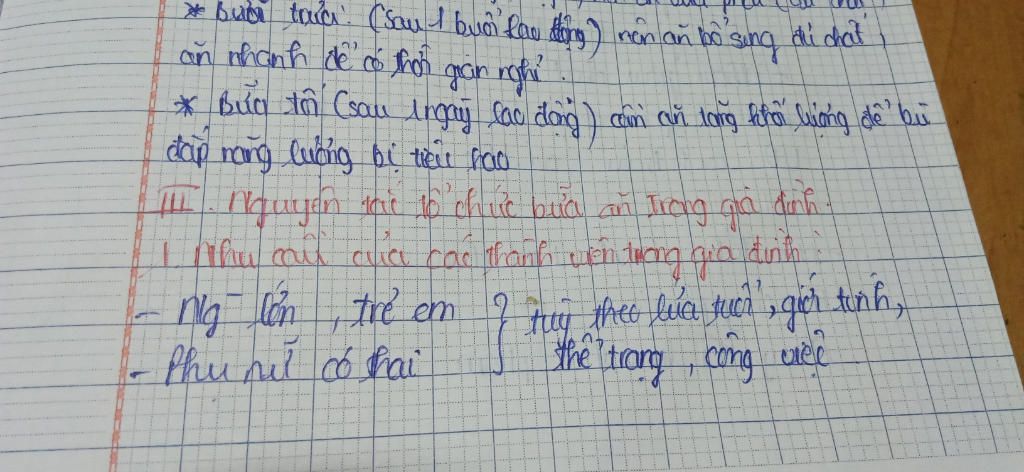 * Bữa trưa: (sau 1 buổi lao động) nên ăn bổ sung đủ chất,
ăn nhanh để có thời gian nghỉ.
* Bữa tối (sau 1 ngày lao động) cần ăn tăng khối lượng để bù
đắp năng lượng bị tiêu hao
III. Nguyên tắc tổ chức bữa ăn trong gia đình.
1 Nhu cầu của các thành viên trong gia đình:
- Ng̅ lớn, trẻ em } tuỳ theo lứa tuổi, giới tính,
- Phụ nữ có thai } thể trạng, công việc